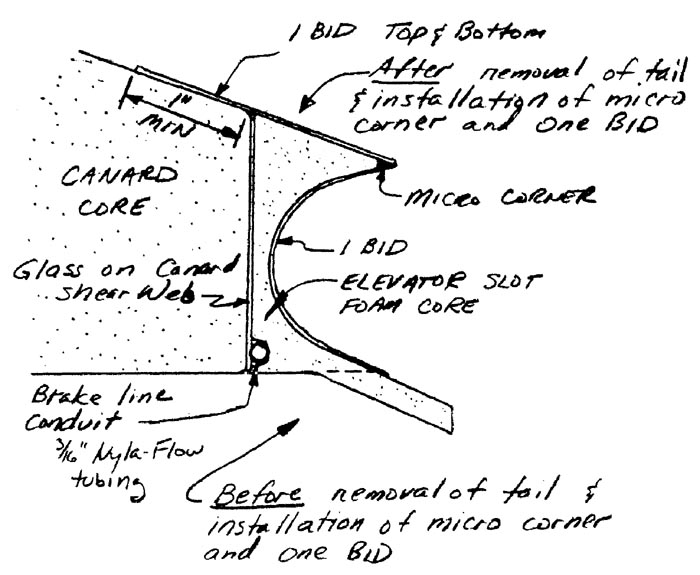 1 BID Top & Bottom
After removal of tail
& installation of micro
corner and one BID
1"
MIN
CANARD
CORE
MICRO CORNER
1 BID
Glass on Canard
shear Web
ELEVATOR SLOT
FOAM CORE
Brake line
Conduit
3/16" Nyla-Flow
tubing
Before removal of tail &
installation of micro corner
and one BID